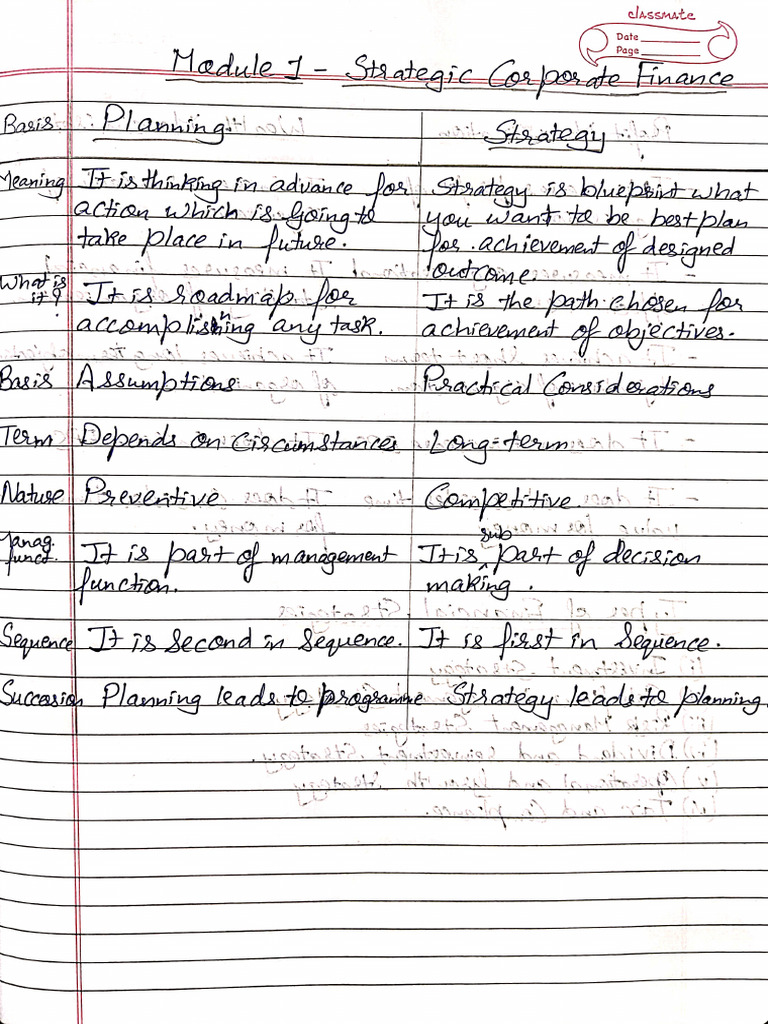 classmate
Date
Page
Module 1 - Strategic Corporate Finance
Basis : Planning Strategy
Meaning It is thinking in advance for Strategy is blueprint what
action which is going to you want to be best plan
take place in future. for achievement of designed
outcome.
What is it? It is roadmap for It is the path chosen for
accomplishing any task. achievement of objectives.
Basis Assumptions Practical Considerations
Term Depends on Circumstances Long-term
Nature Preventive Competitive
Manag. funct. It is part of management It is sub part of decision
function. making.
Sequence It is second in sequence. It is first in sequence.
Succession Planning leads to programme Strategy leads to planning.